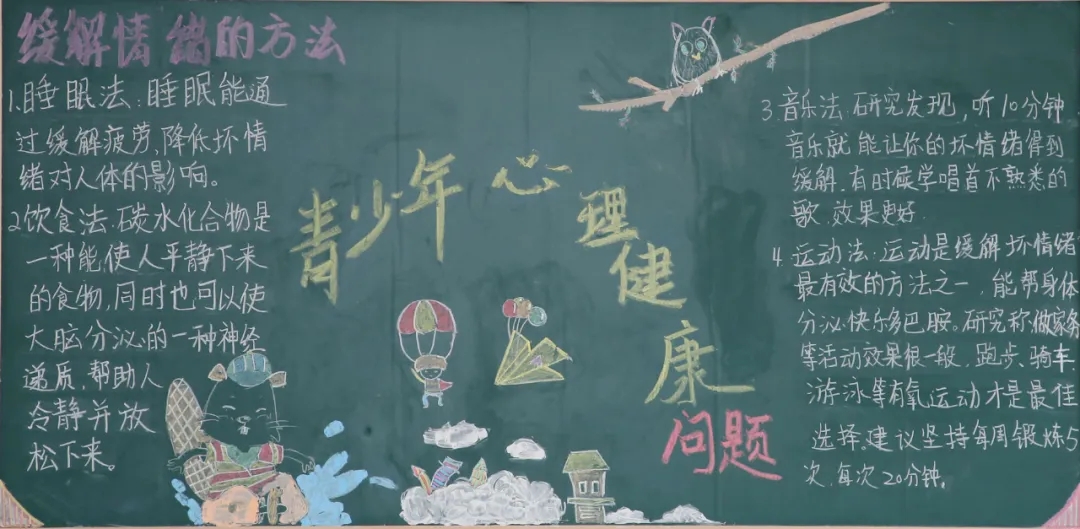 缓解情绪的方法
1.睡眠法:睡眠能通
过缓解疲劳,降低坏情
绪对人体的影响。
2.饮食法:碳水化合物是
一种能使人平静下来
的食物,同时也可以使
大脑分泌的一种神经
递质,帮助人
冷静并放
松下来。
青少年心理健康
问题
3.音乐法:研究发现,听10分钟
音乐就能让你的坏情绪得到
缓解.有时候学唱首不熟悉的
歌.效果更好.
4.运动法:运动是缓解坏情绪
最有效的方法之一,能帮身体
分泌快乐多巴胺。研究称,做家务
等活动效果很一般.跑步.骑车.
游泳等有氧运动才是最佳
选择.建议坚持每周锻炼5
次,每次20分钟。